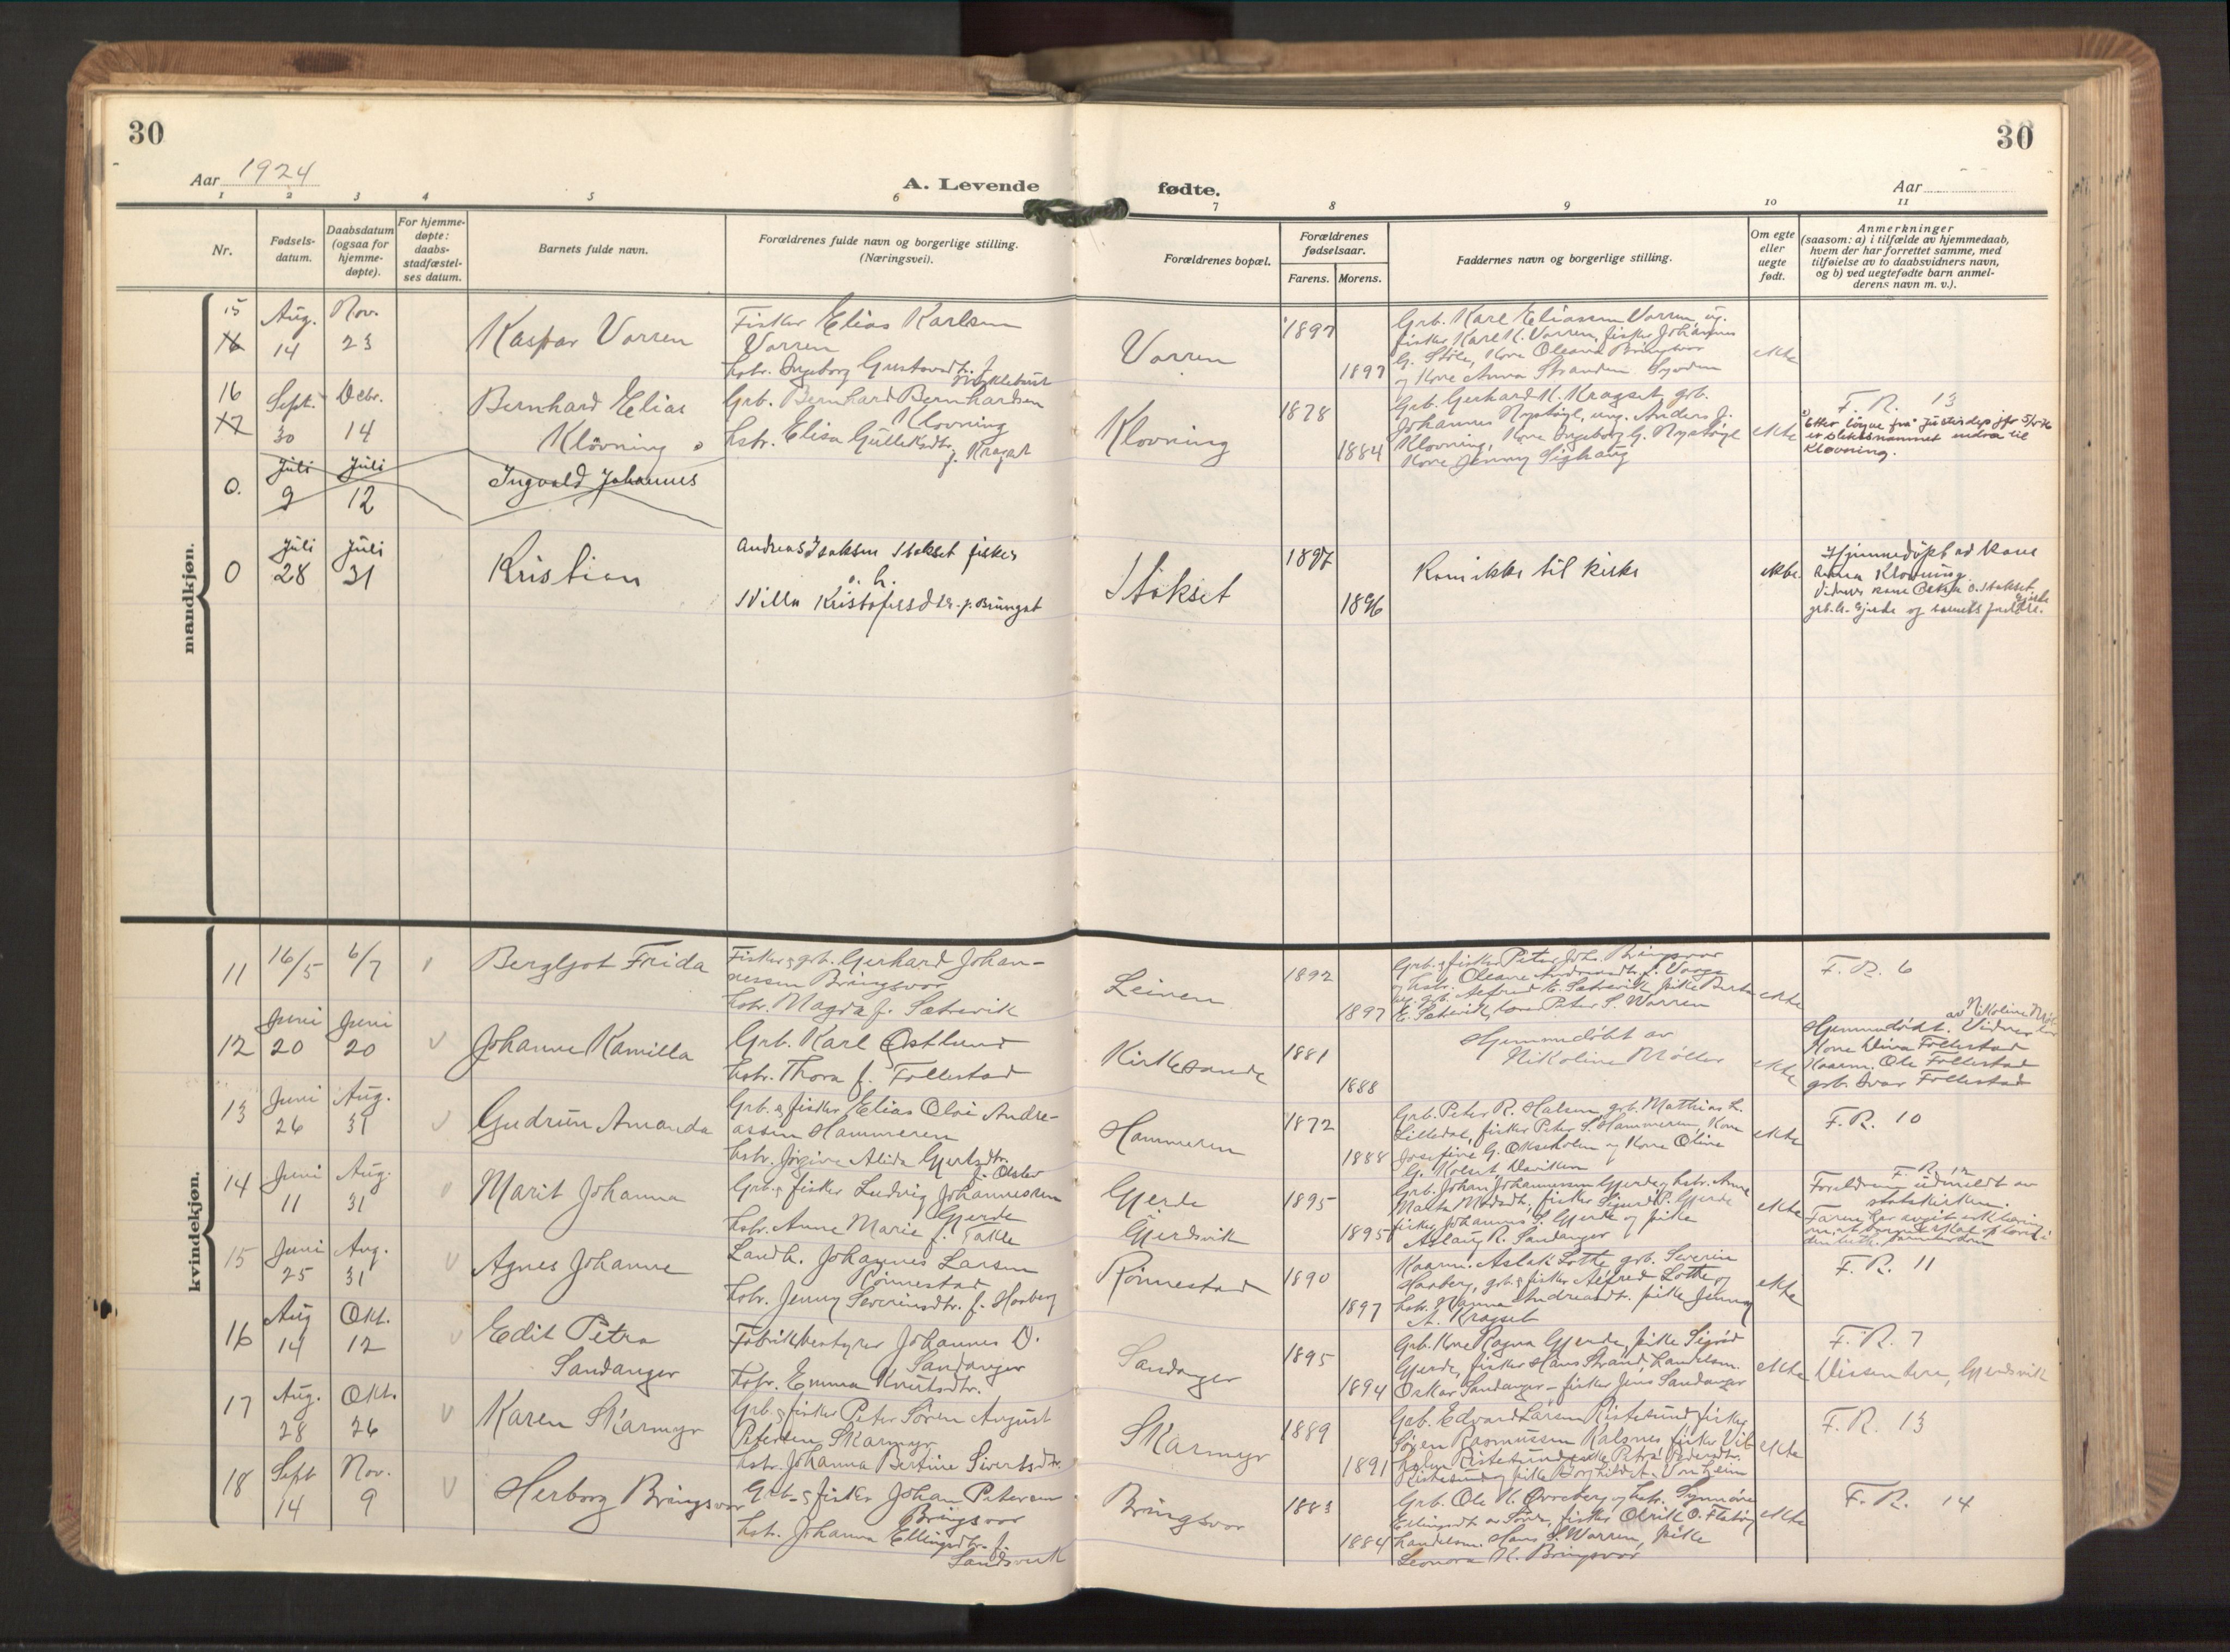 30
30
Aar 1924
A. Levende fødte.
Aar
1 2 3 4 5 6 7 8 9 10 11
Nr.
Fødsels-
datum.
Daabsdatum
(ogsaa for
hjemme-
døpte).
For hjemme-
døpte:
daabs-
stadfæstel-
ses datum.
Barnets fulde navn.
Forældrenes fulde navn og borgerlige stilling.
(Næringsvei).
Forældrenes bopæl.
Forældrenes
fødselsaar.
Farens. Morens.
Faddernes navn og borgerlige stilling.
Om egte
eller
uegte
født.
Anmerkninger
(saasom: a) i tilfælde av hjemmedaab,
hvem der har forrettet samme, med
tilføielse av to daabsvidners navn,
og b) ved uegtefødte barn anmel-
derens navn m. v.).
mandkjøn.
15
16
Aug.
14
Nov.
23
Kaspar Vorren
Fisker Elias Karlsen
Vorren
hstr. Ingeborg Gustavsdtr. f.
Myklebust
Vorren
1897
1897
Grb. Karl Eliassen Vorren, ug.
fisker Karl K. Vorren, fisker Johannes
G. Støle, Kone Oleana Bringsvor
og Kone Anna Strand
ekte
16
17
Sept.
30
Decbr.
14
Bernhard Elias
Klövning
Grb. Bernhard Bernhardsen
Klovning
hstr. Elisa Gulleksdtr.
f. Kragset
Klovning
1878
1884
Grb. Gerhard K. Kragset, grb.
Johannes Nystøyl, ung. Anders J.
Klovning, Kone Ingeborg G. Nystøyl
Kone Jenny Sighaug
ekte
F. R. 13
Etter løyve frå Justisdep
er slektsnamnet endra til
Klovning.
0.
Juli
9
Juli
12
Ingvald Johannes
0
Juli
28
Juli
31
Kristian
Andreas Isaksen Stokset fisker
o. h.
Villa Kristofersdtr. f. Bringsvt
Stokset
1897
1896
Kom ikke til kirke
ekte.
Hjemmedöpt av kone
Klovning.
Vidner kone Petra O. Stokset
og barnets fadder.
kvindekjøn.
11
16/5
6/7
Bergljot Frida
Fisker & grb. Gerhard Johan-
nessen Bringsvor
hstr. Magda f. Sætrevik
Leinen
1892
1897
Grb. & fisker Peter Joh. Bringsvor
og hstr. Oleane Andreasdtr. f. Vorge
ug. grb. Alfred E. Sætrevik, pike Berta
E. Sætrevik, Peter S. Warren
ekte
F. R. 6
12
Juni
20
Juni
20
Johanne Kamilla
Grb. Karl Ostlund
hstr. Thora f. Follestad
Kirkesande
1881
1888
Hjemmedöbt av
Nikoline Møller
ekte
av Nikoline Møller
Hjemmedöbt. Vidner
Kone Follestad
Kaarm. Ole Follestad
grb. Ivar Follestad
13
Juni
26
Aug.
31
Gudrun Amanda
Grb. & fisker Elias Olai Andre-
assen Hammeren
hstr. Jørgine Alida Gjertsdtr.
Hammeren
1872
1888
Grb. Peter R. Halsen, grb. Mathias L.
Lilledal, fisker Peter S. Hammeren, Kone
Josefine G. Okseholm og Kone Oline
G. Kolset
ekte
F. R. 10
14
Juni
11
Aug.
31
Marit Johanna
Grb. & fisker Ludvig Johannessen
Gjerde
hstr. Anne Marie f. Takle
Gjerde
Gjerdsvik
1895
1895
Grb. Johan Johannessen Gjerde og hstr. Anne
Malta Madsdtr., fisker Sigurd P. Gjerde
fisker Johannes S. Gjerde og pike
Aslaug R. Sandanger
ekte
F. R. 12
Foreldrene utmeldt av
statskirken.
15
Juni
25
Aug.
31
Agnes Johanne
Landh. Johannes Larsen
Rönnestad
hstr. Jenny Severinsdtr. f. Haaberg
Rønnestad
1890
1897
Kaarm. Aslak Lotte grb. Severin
Haaberg, grb. & fisker Alfred Lotte og
hstr. Hanna Andreasdtr. pike Jenny
A. Kragset
ekte
F. R. 11
16
Aug
14
Okt.
12
Edit Petra
Sandanger
Fabrikbestyrer Johannes O.
Sandanger
hstr. Emma Knutsdtr.
Sandanger
1895
1894
Grb. Kone Ragna Gjerde, pike Sigrid
Gjerde, fisker Hans Strand, handelsm.
Oskar Sandanger - fisker Jens Sandanger
ekte
F. R. 7
Gjerdsvik
17
Aug.
28
Okt.
26
Karen Skarmyr
Grb. & fisker Peter Søren August
Petersen Skarmyr
hstr. Johanna Bertine Sivertsdtr.
Skarmyr
1889
1891
Grb. Edvard Larsen Ristesund, fisker
Søren Rasmussen Kalsnes, fisker Vil-
helm Ristesund, pike Petra Pedersdtr.
Ristesund og pike Borghild A. Vorrheim
ekte
F. R. 13
18
Sept
14
Nov.
9
Herborg Bringsvor
Grb. & fisker Johan Petersen
Bringsvor
hstr. Johanna Ellingsdtr. f.
Landsverk
Bringsvor
1883
1884
Grb. Ole K. Ovreberg og hstr. Synnøve
Ellingsdt. av Sörd, fisker Olrik O. Flatöy
handelsm. Hans S. Warren, pike
Leonora K. Bringsvor
ekte
F. R. 14